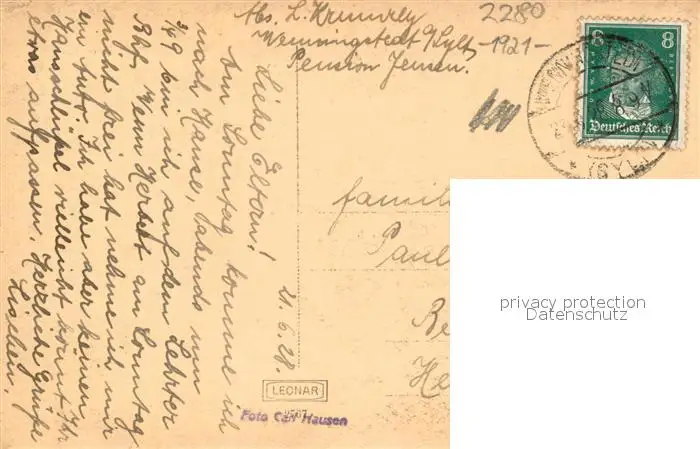 Abs. L. Krumrey
Wenningstedt a/Sylt
Pension Jensen.
2280
-1921-
8 8
Deutsches Reich
Liebe Eltern!
Am Sonntag komme ich
nach Hause, abends um
3/4 9 bin ich auf dem Lehrter
Bhf. Wenn Herbert am Sonntag
nicht frei hat nehme ich mir
ein Auto. Ich habe aber keinen
Hausschlüssel vielleicht könnt Ihr
etwas aufpassen. Herzliche Grüße
Lieschen.
21.6.28.
Famili
Paul
Be
He
LEONAR
Foto Carl Hausen
privacy protection
Datenschutz